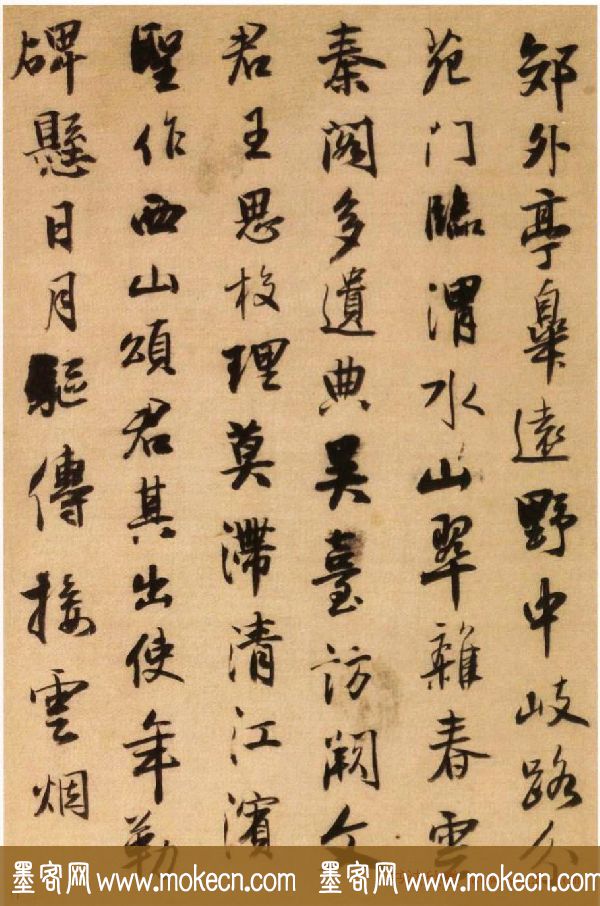 郊外亭皋遠野中岐路分
苑門臨渭水山翠雜春雲
秦閣多遺典吳臺訪闕文
君王思校理莫滯清江濱
聖作西山頌君其出使年勒
碑懸日月驅傳接雲烟
墨客网 www.mokecn.com 墨客网 www.mokecn.com